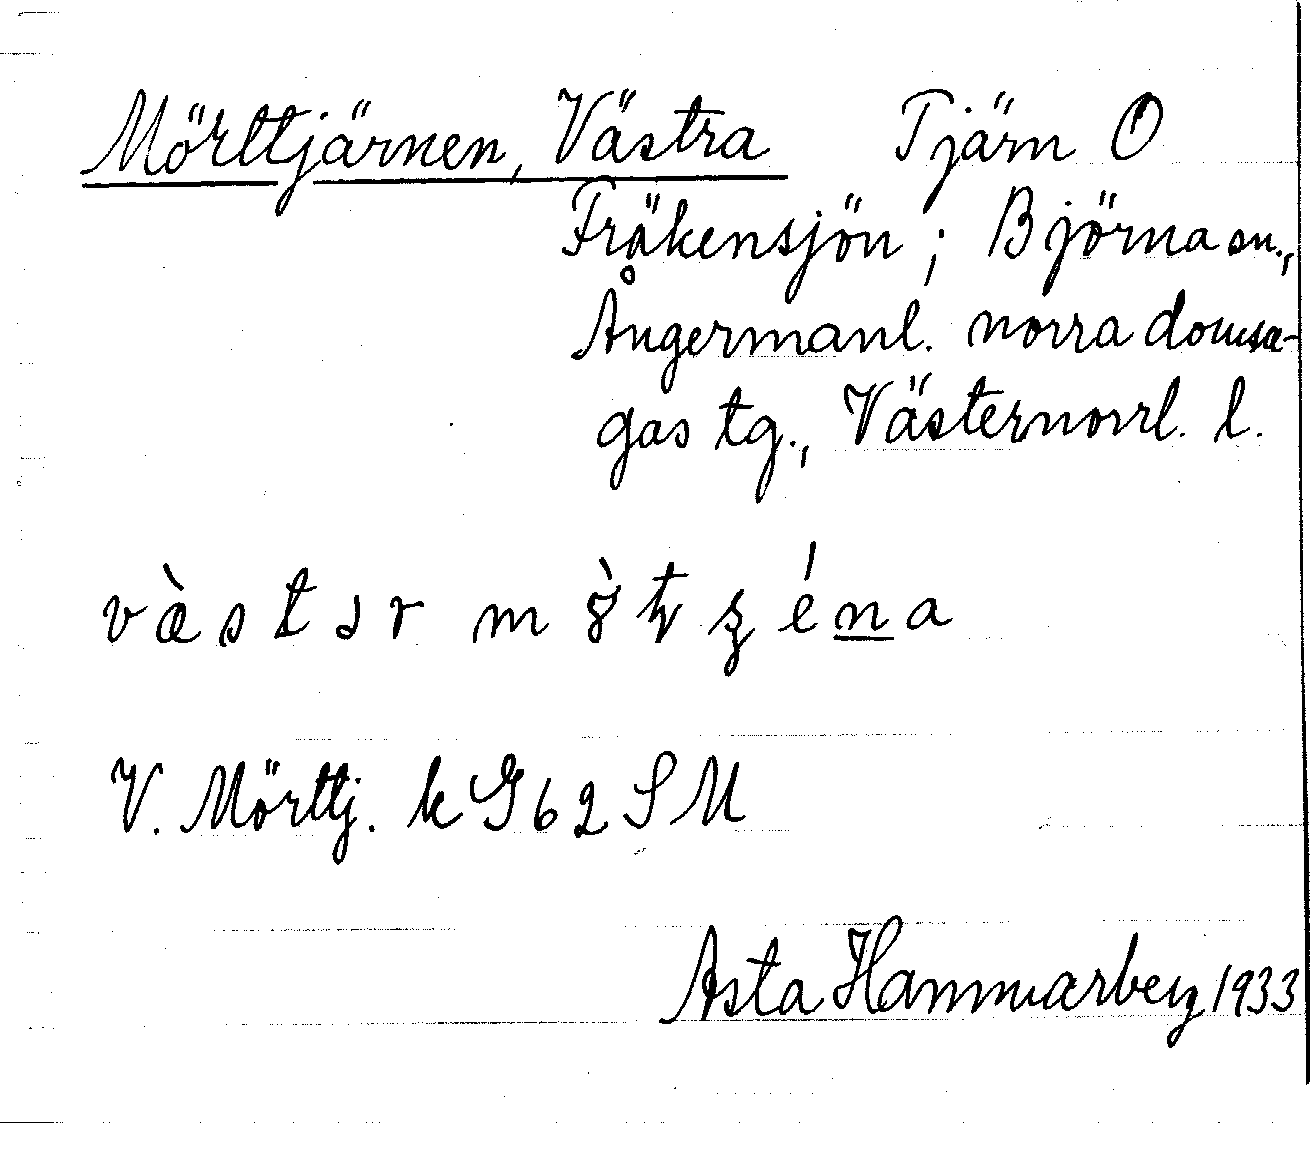 Mörttjärnen, Västra Tjärn O
Fräkensjön; Björna sn.,
Ångermanl. norra domsa-
gas tg., Västernorrl. l.
V. Mörttj. k G 62 S M
Asta Hammarberg 1933